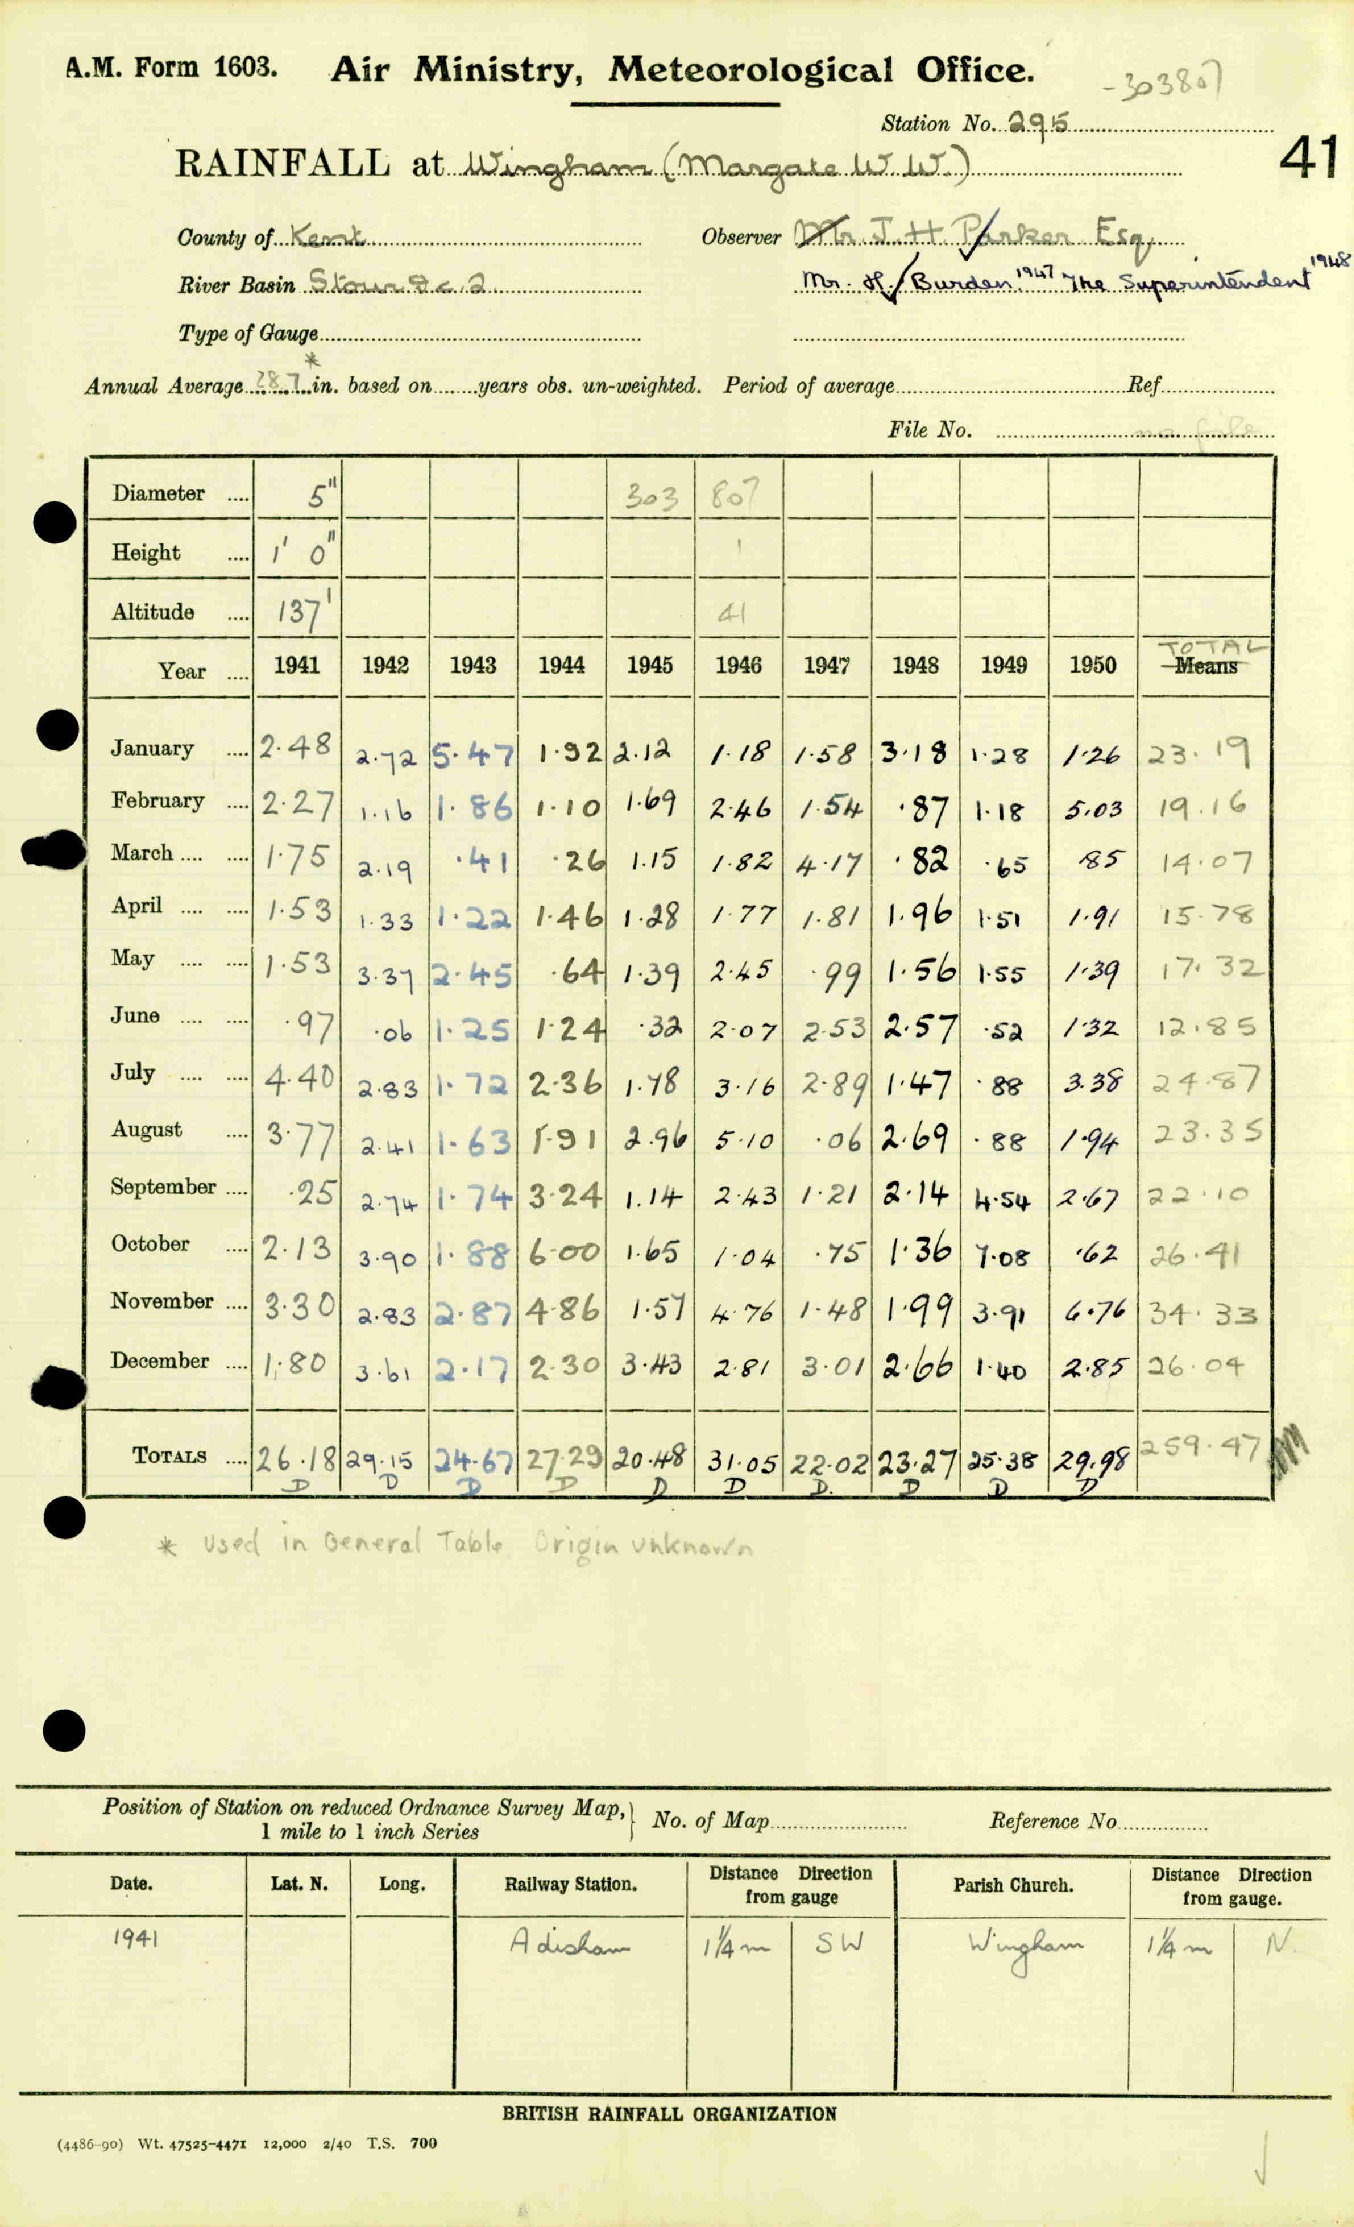 A.M. Form 1603. Air Ministry, Meteorological Office. -303807
Station No. 295
41
RAINFALL at Wingham (Margate W.W.)
County of Kent Observer Mr J.H. Parker Esq
River Basin Stour &c. 2 Mr. H. Burden 1947 The Superintendent 1948
Type of Gauge
Annual Average 28.7* in. based on years obs. un-weighted. Period of average Ref.
File No. no file
Diameter .... 5" 303 807
Height .... 1' 0" 1
Altitude .... 137' 41
Year .... 1941 1942 1943 1944 1945 1946 1947 1948 1949 1950 TOTAL Means
January .... 2.48 2.72 5.47 1.92 2.12 1.18 1.58 3.18 1.28 1.26 23.19
February .... 2.27 1.16 1.86 1.10 1.69 2.46 1.54 .87 1.18 5.03 19.16
March .... .... 1.75 2.19 .41 .26 1.15 1.82 4.17 .82 .65 .85 14.07
April .... .... 1.53 1.33 1.22 1.46 1.28 1.77 1.81 1.96 1.51 1.91 15.78
May .... .... 1.53 3.37 2.45 .64 1.39 2.45 .99 1.56 1.55 1.39 17.32
June .... .... .97 .06 1.25 1.24 .32 2.07 2.53 2.57 .52 1.32 12.85
July .... .... 4.40 2.83 1.72 2.36 1.78 3.16 2.89 1.47 .88 3.38 24.87
August .... 3.77 2.41 1.63 1.91 2.96 5.10 .06 2.69 .88 1.94 23.35
September .... .25 2.74 1.74 3.24 1.14 2.43 1.21 2.14 4.54 2.67 22.10
October .... 2.13 3.90 1.88 6.00 1.65 1.04 .75 1.36 7.08 .62 26.41
November .... 3.30 2.83 2.87 4.86 1.57 4.76 1.48 1.99 3.91 6.76 34.33
December .... 1.80 3.61 2.17 2.30 3.43 2.81 3.01 2.66 1.40 2.85 26.04
TOTALS .... 26.18 29.15 24.67 27.29 20.48 31.05 22.02 23.27 25.38 29.98 259.47
D D D D D D D. D D D
* Used in General Table Origin unknown
Position of Station on reduced Ordnance Survey Map, No. of Map Reference No.
1 mile to 1 inch Series
Date. Lat. N. Long. Railway Station. Distance Direction from gauge Parish Church. Distance Direction from gauge.
1941 Adisham 1¼ m SW Wingham 1¼ m N.
BRITISH RAINFALL ORGANIZATION
(4486-90) Wt. 47525-4471 12,000 2/40 T.S. 700